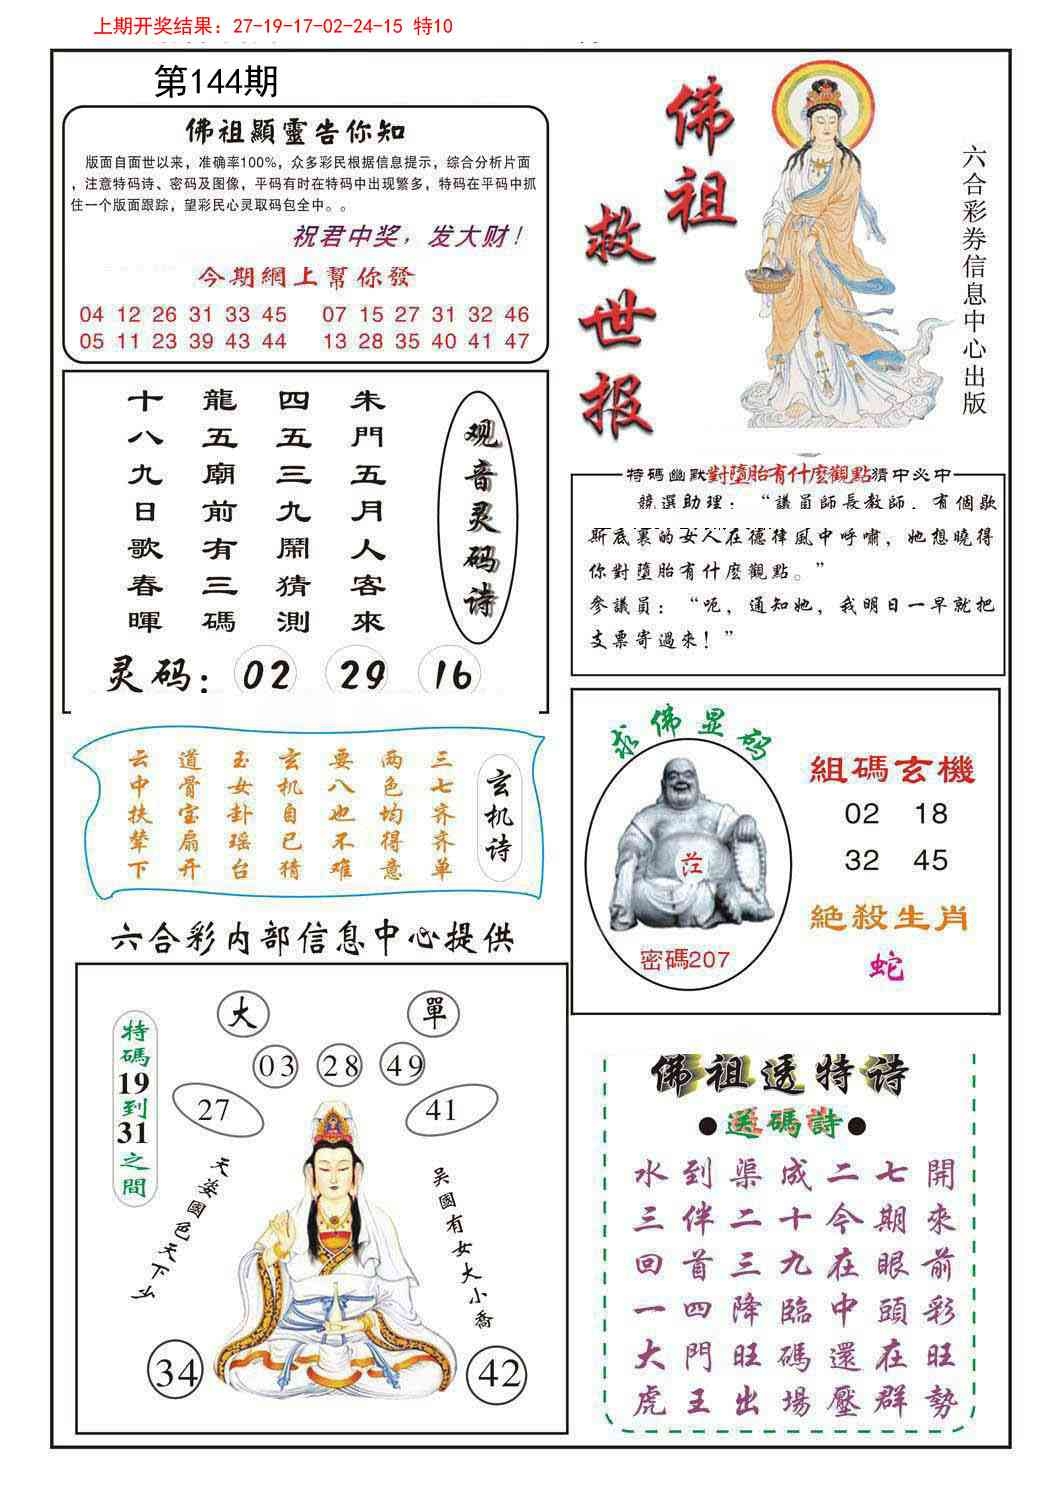 上期开奖结果：27-19-17-02-24-15 特10
第144期
佛祖顯靈告你知
版面自面世以来，准确率100%，众多彩民根据信息提示，综合分析片面
，注意特码诗、密码及图像，平码有时在特码中出现繁多，特码在平码中抓
住一个版面跟踪，望彩民心灵取码包全中。。
祝君中奖，发大财！
今期網上幫你發
04 12 26 31 33 45 07 15 27 31 32 46
05 11 23 39 43 44 13 28 35 40 41 47
佛祖
救世报
六合彩券信息中心出版
观音灵码诗
朱門五月人客來
四五三九鬧猜測
龍五廟前有三碼
十八九日歌春暉
灵码：02 29 16
特碼幽默對墮胎有什麼觀點猜中必中
競選助理：“議員師長教師．有個歇
斯底裏的女人在德律風中呼嘯，她想曉得
你對墮胎有什麼觀點。”
參議員：“呃，通知她，我明日一早就把
支票寄過來！”
玄机诗
三七齐齐单
两色均得意
要八也不难
玄机自已猜
玉女卦瑶台
道骨宝扇开
云中扶辇下
求佛显码
密碼207
組碼玄機
02 18
32 45
絕殺生肖
蛇
六合彩内部信息中心提供
特碼19到31之間
大 單
03 28 49
27 41
天姿國色天下少
吴國有女大小喬
34 42
佛祖透特诗
●送碼詩●
水到渠成二七開
三伴二十今期來
回首三九在眼前
一四降臨中頭彩
大門旺碼還在旺
虎王出場壓群勢